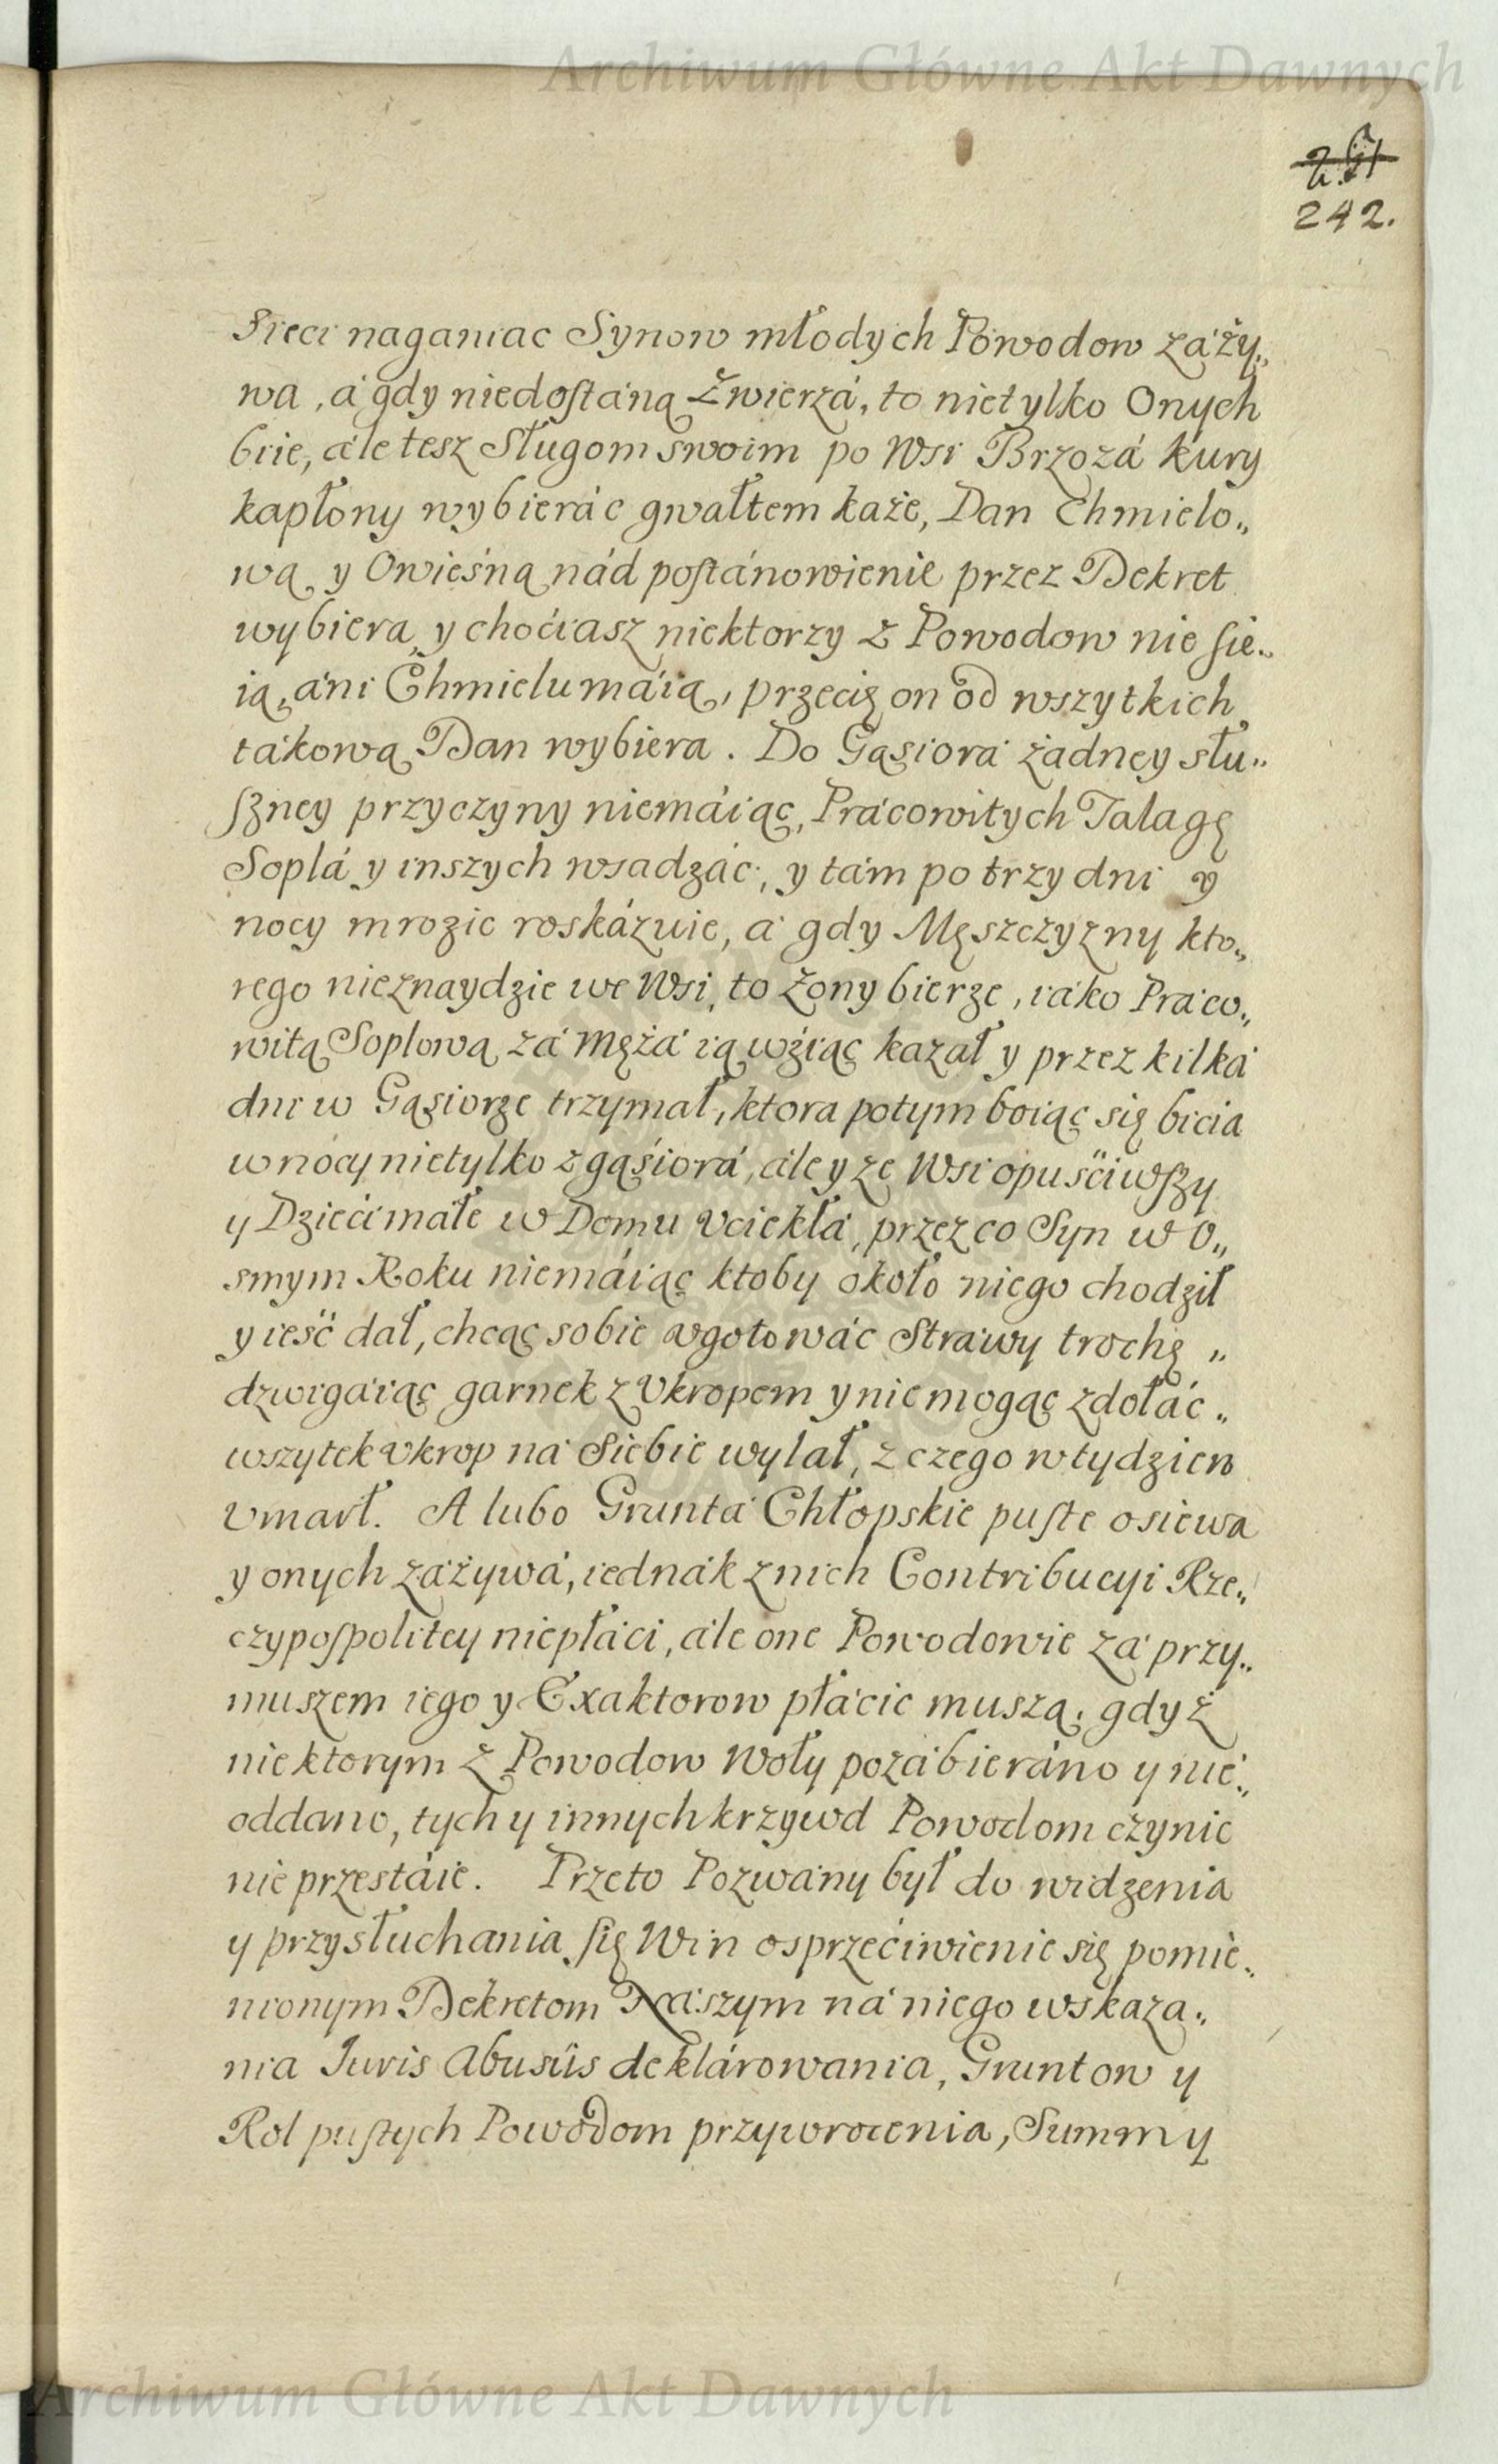 Archiwum Główne Akt Dawnych
242.
Sieci naganiac Synow młodych Powodow záży„
wa, á gdy niedostáną Zwierzá, to nietylko Onych
biie, ále tesz Sługom swoim po Wsi Brzozá kury
kapłony wybieráć gwałtem każe, Dan Chmielo„
wą y Owieśną nád postánowienie przez Dekret
wybiera, y choćiasz niektorzy z Powodow nie sie„
ią, áni Chmielu máią, przecię on od wszytkich
tákową Dan wybiera. Do Gąsiorá żadney słu„
szney przyczyny niemáiąc, Prácowitych Talagę
Soplá y inszych wsadzáć, y tám po trzy dni y
nocy mrozic roskázuie, á gdy Męszczyzny kto„
rego nieznaydzie we Wsi, to Żony bierze, iáko Práco„
witą Soplową zá Mężá ią wźiąc kazał y przez kilká
dni w Gąsiorze trzymał, ktora potym boiąc się bicia
w nocy nietylko z gąśiorá, ále y ze Wsi opuśćiwszy
y Dzieći máłe w Domu vciekłá, przez co Syn w O„
smym Roku niemáiąc ktoby około niego chodził
y ieść dał, chcąc sobie vgotowáć Stráwy trochę „
dzwigáiąc garnek z Vkropem y nie mogąc zdołáć „
wszytek vkrop ná Siebie wylał, z czego w tydzien
Vmarł. A lubo Gruntá Chłopskie puste osiewa
y onych záżywá, iednák z nich Contribucyi Rze„
czypospolitey niepłáci, ále one Powodowie zá przy„
muszem iego y Exaktorow płácic muszą, gdyż
niektorym z Powodow Woły pozábieráno y nie„
oddano, tych y innych krzywd Powodom czynic
nie przestáie. Przeto Pozwány był do widzenia
y przysłuchania się Win o sprzećiwienie się pomie„
nionym Dekretom Nászym ná niego wskaza„
nia Juris Abusûs deklárowania, Gruntow y
Rol pustych Powodom przywrocenia, Summy
Archiwum Główne Akt Dawnych